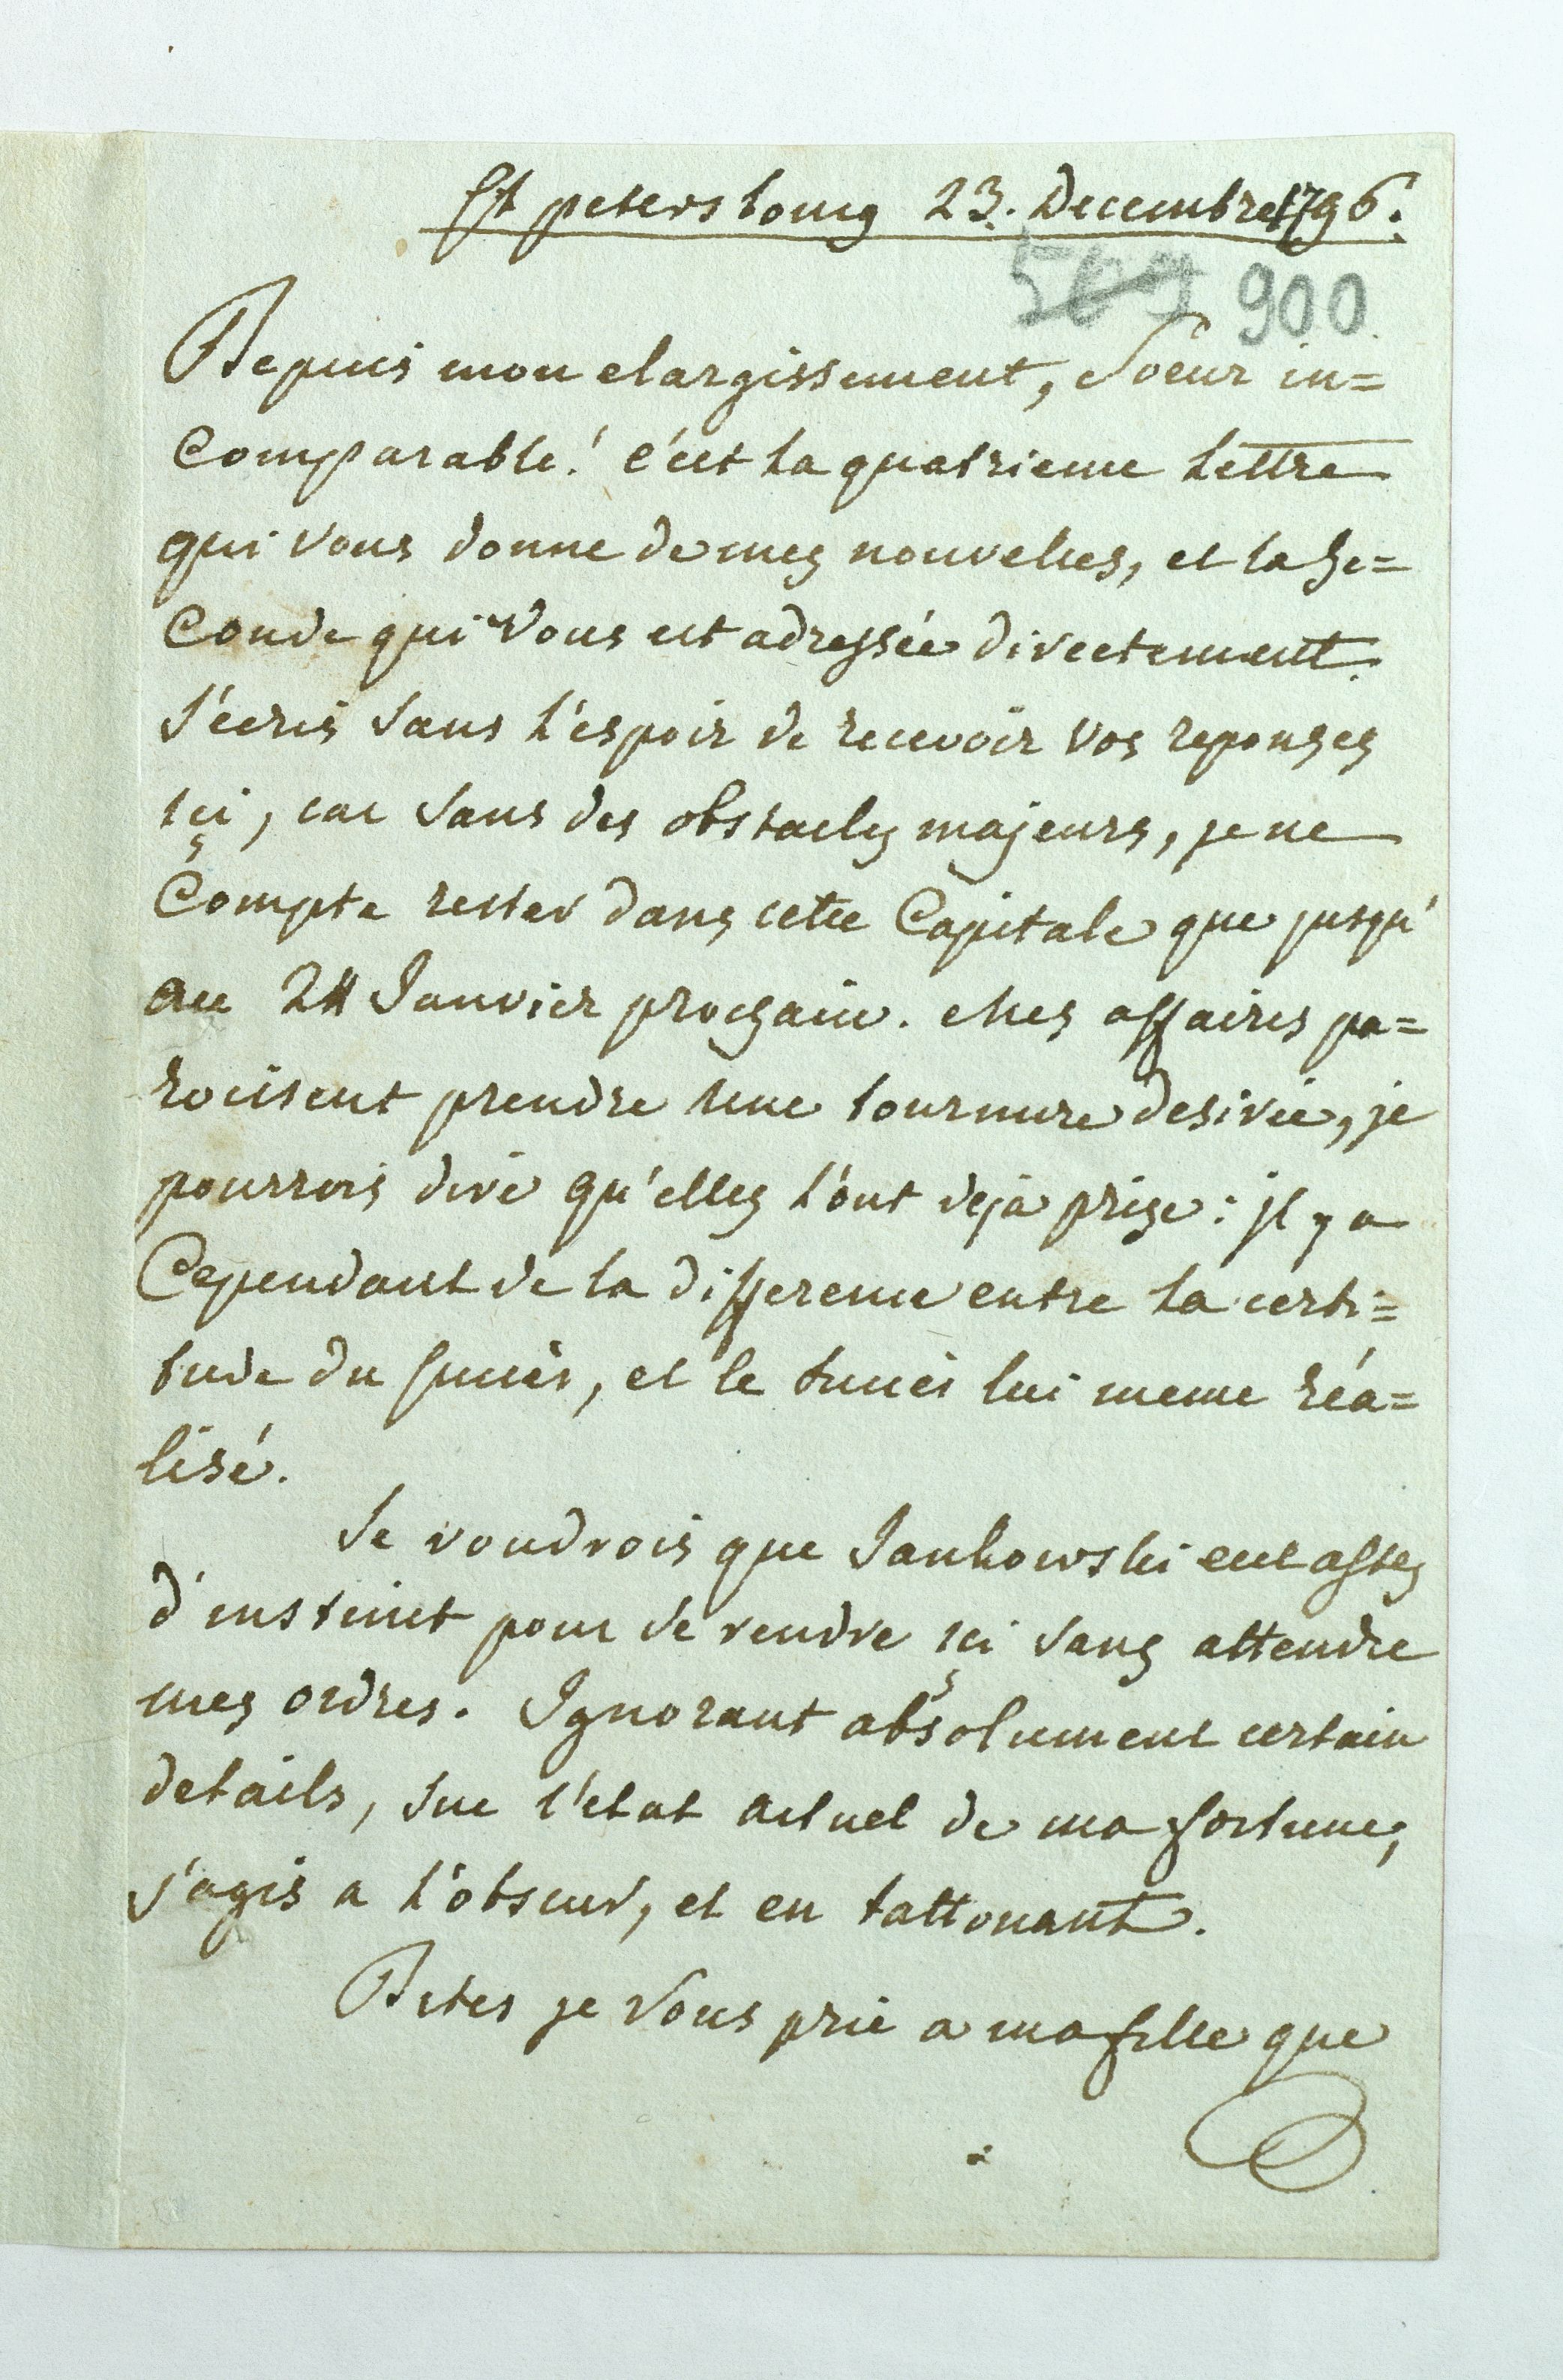 St petersbourg 23. Decembre 1796.
509 900
Depuis mon elargissement, Soeur in=
comparable! c'est la quatrieme lettre
qui vous donne de mes nouvelles, et la se=
conde qui vous est adressée directement.
J'ecris sans l'espoir de recevoir vos reponses
içi, car sans des obstacles majeurs, je ne
compte rester dans cette Capitale que jusqu'
au 24 Janvier prochain. Mes affaires pa=
roissent prendre une tournure desirée, je
pourrois dire qu'elles l'ont deja prise: il y a
Cependant de la difference entre la certi=
tude du succès, et le succès lui meme réa=
lisé.
Je voudrois que Jankowski eut assez
d'instinct pour se rendre içi sans attendre
mes ordres. Ignorant absolument certain
details, sur l'etat actuel de ma fortune,
j'agis a l'obscur, et en tattonant.
Dites je vous prie a ma fille que